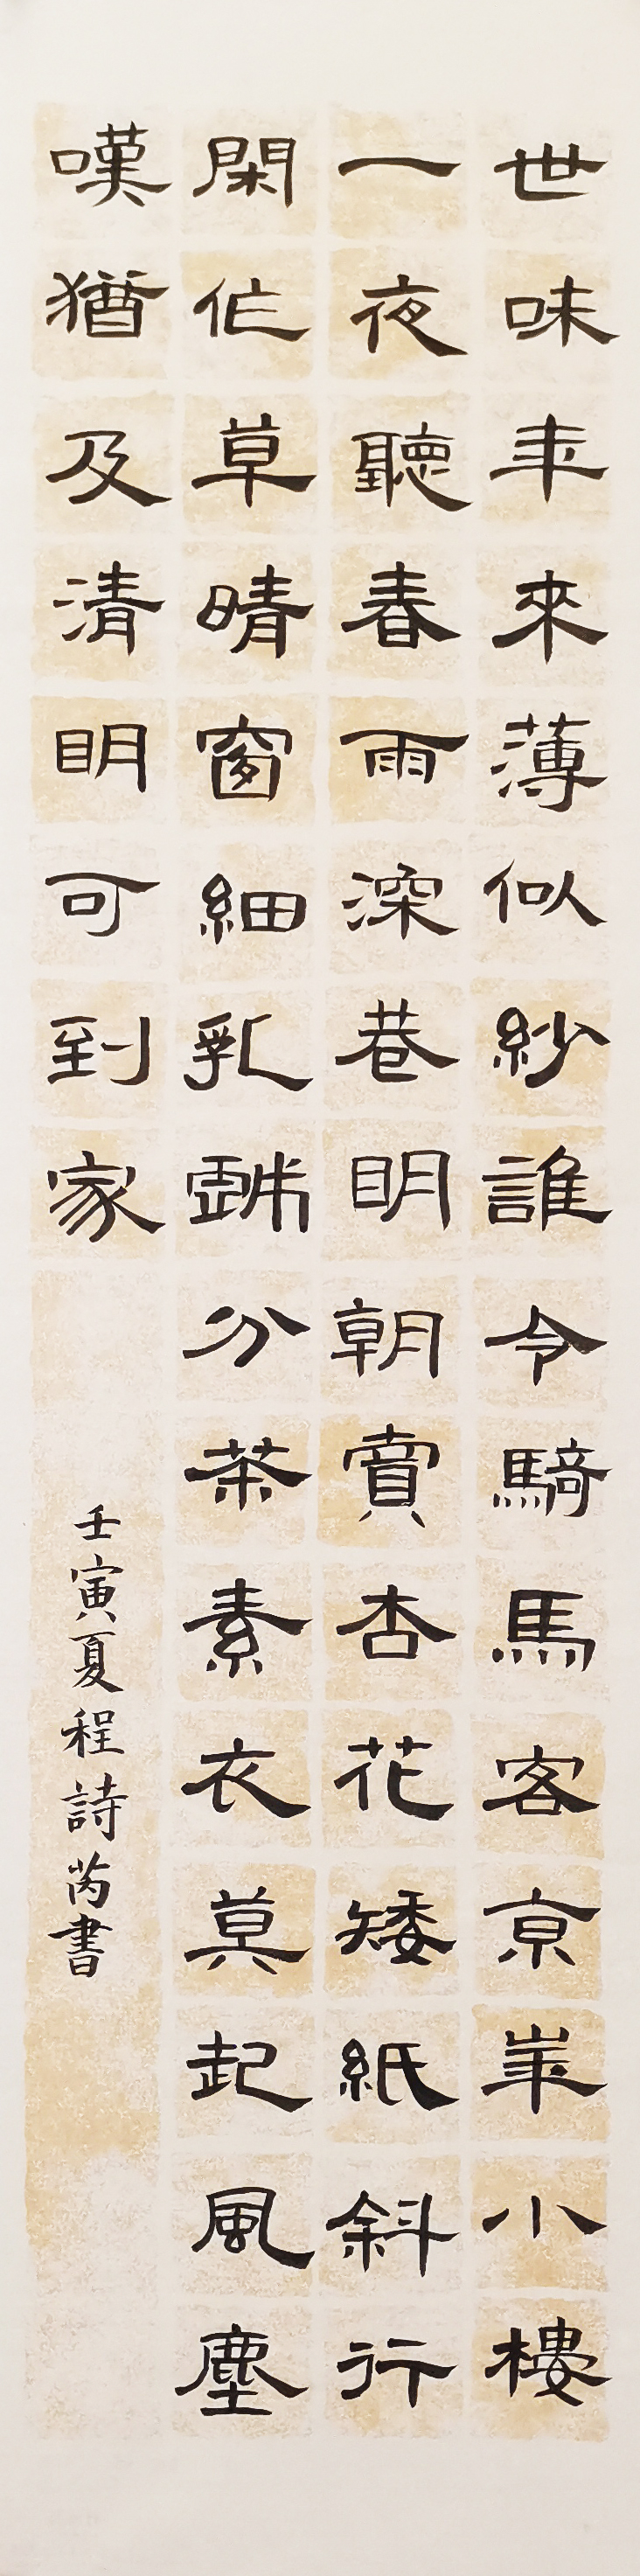 世味年來薄似紗誰令騎馬客京華小樓
一夜聽春雨深巷明朝賣杏花矮紙斜行
閑作草晴窗細乳戲分茶素衣莫起風塵
嘆猶及清明可到家
壬寅夏程詩芮書